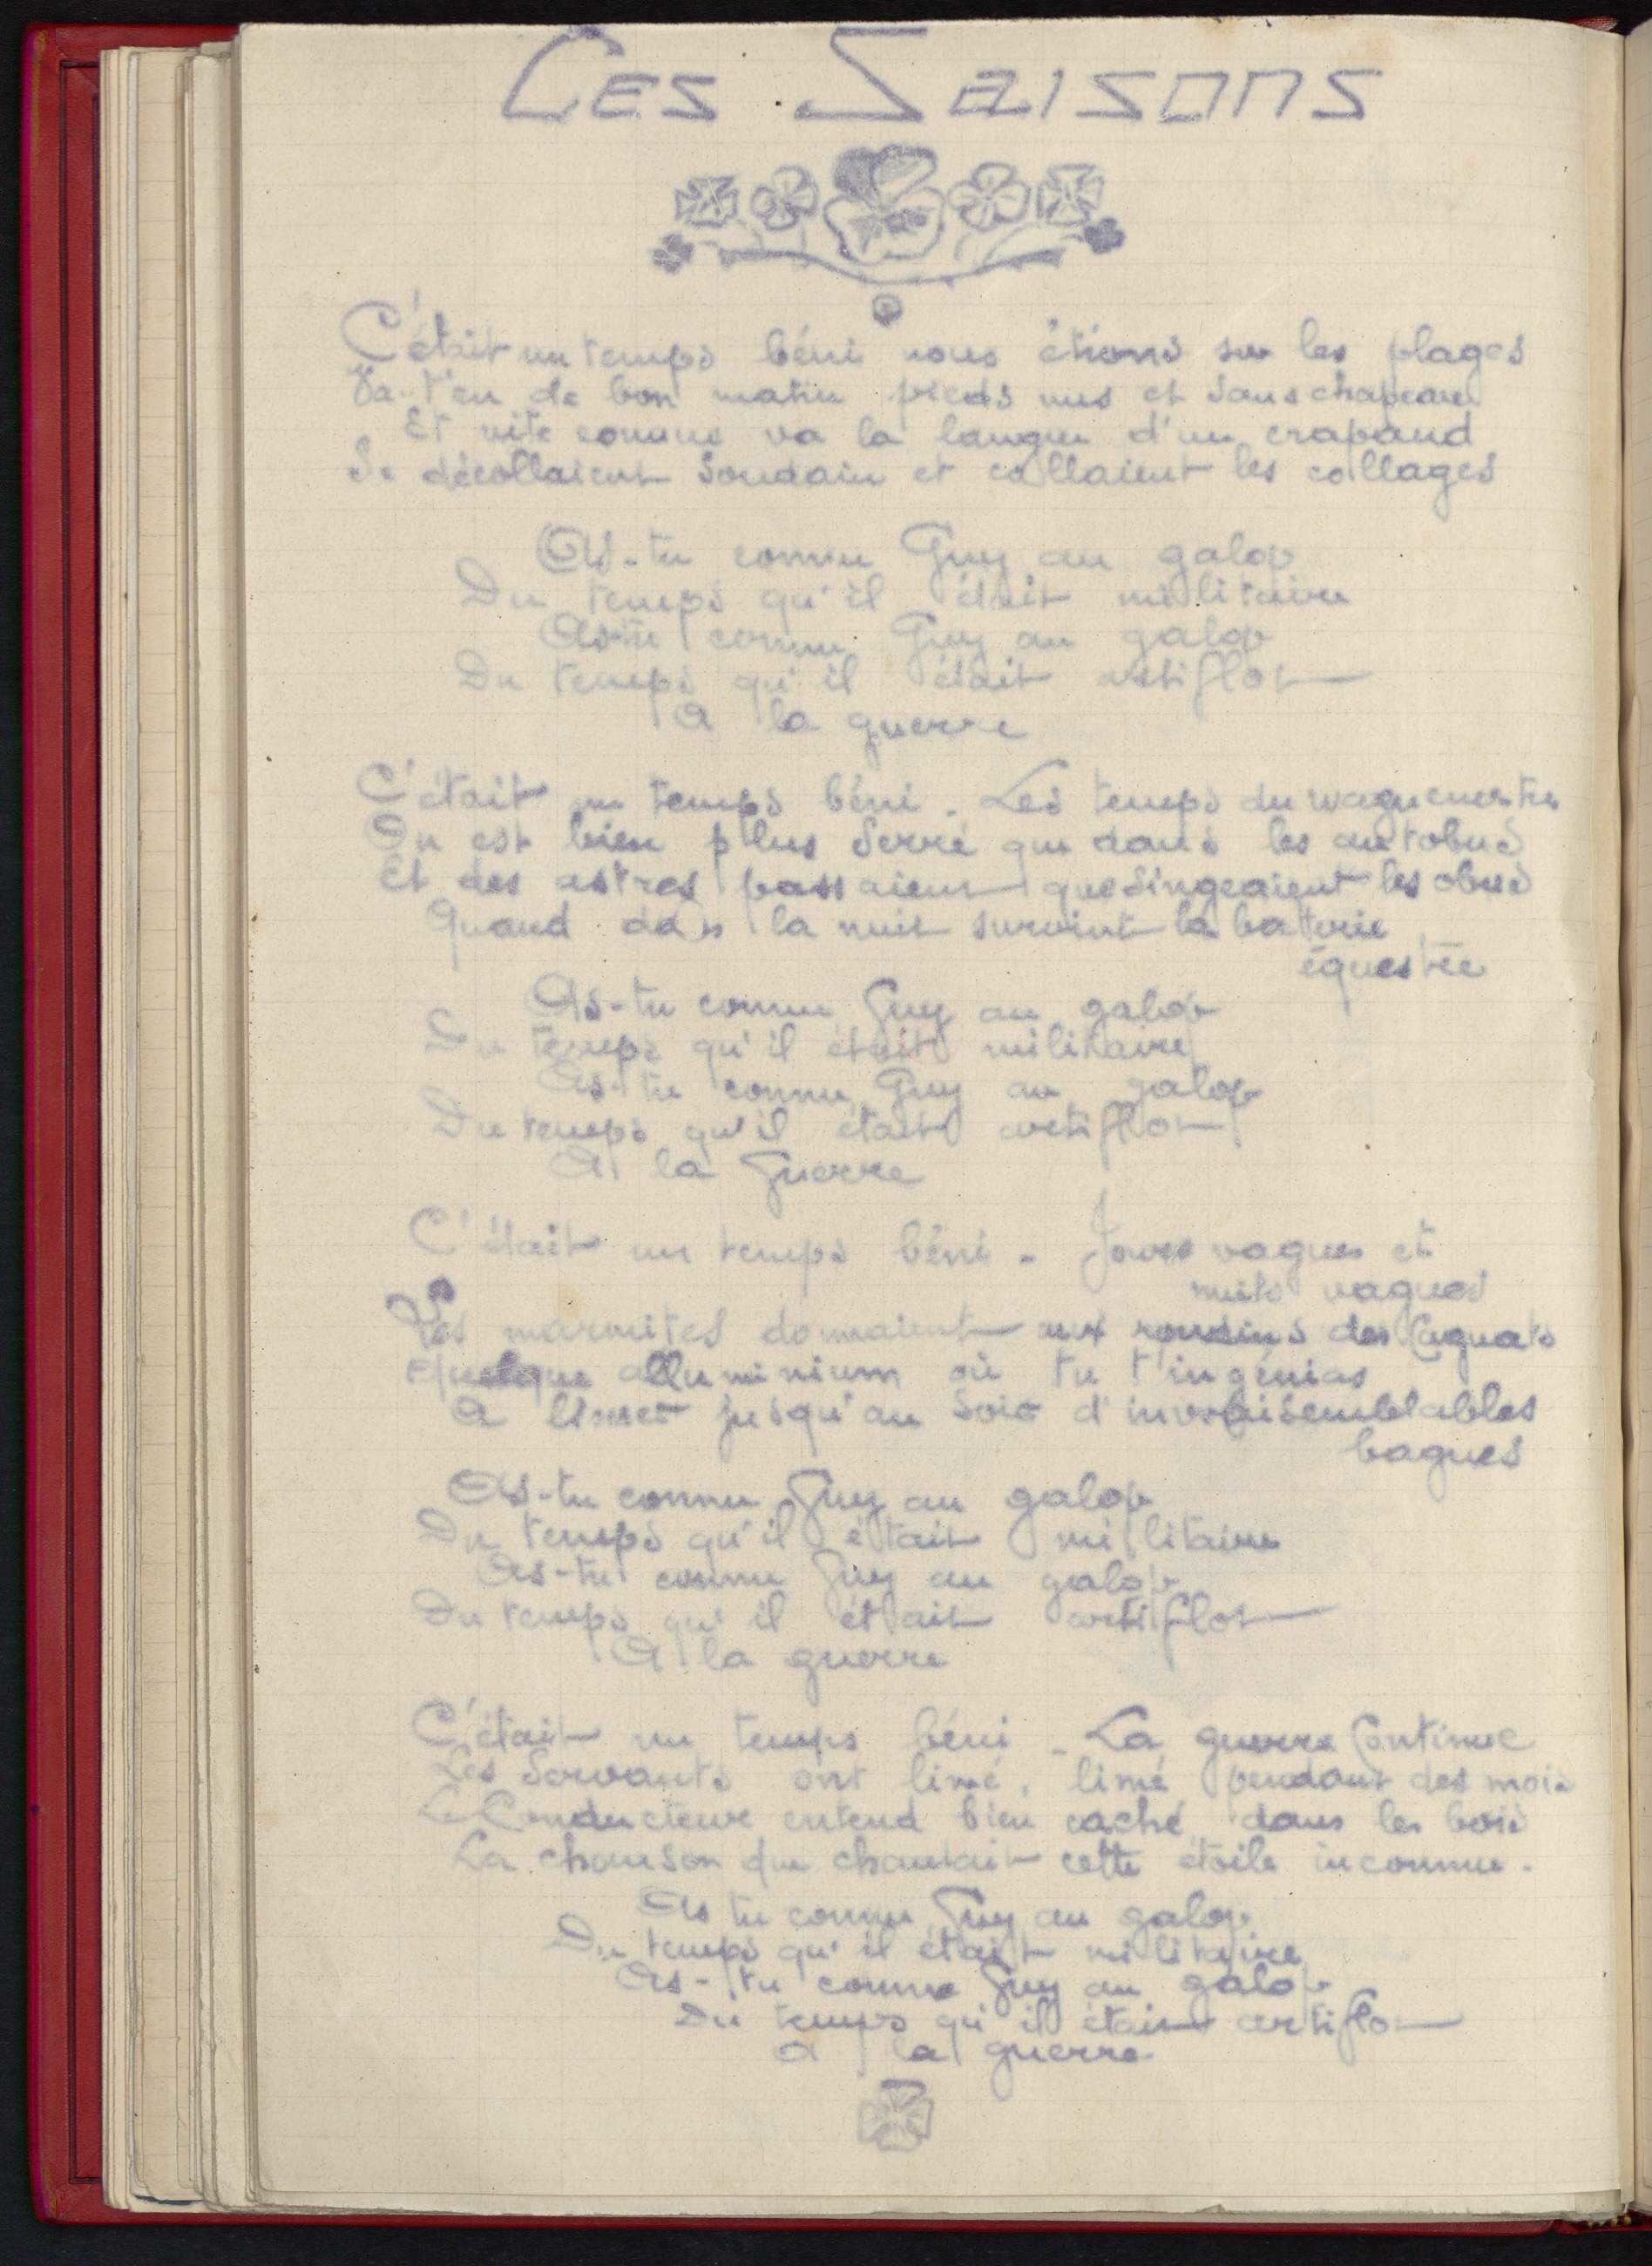 LES SAISONS
C'était un temps béni nous étions sur les plages
Va-t'en de bon matin pieds nus et sans chapeau
Et vite comme va la langue d'un crapaud
Se décollaient soudain et collaient les collages
As-tu connu Guy au galop
Du temps qu'il était militaire
As-tu connu Guy au galop
Du temps qu'il était artiflot
A la guerre
C'était un temps béni. Les temps du vaguemestre
On est bien plus serré que dans les autobus
Et des astres passaient que singeaient les obus
Quand dans la nuit survint la batterie
équestre
As-tu connu Guy au galop
Du temps qu'il était militaire
As-tu connu Guy au galop
Du temps qu'il était artiflot
A la Guerre
C'était un temps béni - Jours vagues et
nuits vagues
Les marmites donnaient aux rondins des Cagnats
Quelque alluminium où tu t'ingénias
A limer jusqu'au soir d'invraisemblables
bagues
As-tu connu Guy au galop
Du temps qu'il était militaire
As-tu connu Guy au galop
Du temps qu'il était artiflot
A la guerre
C'était un temps béni - La guerre Continue
Les Servants ont limé, limé pendant des mois
Le Conducteur entend bien caché dans les bois
La chanson que chantait cette étoile inconnue.
As tu connu Guy au galop
Du temps qu'il était militaire
As-tu connu Guy au galop
Du temps qu'il était artiflot
a la guerre